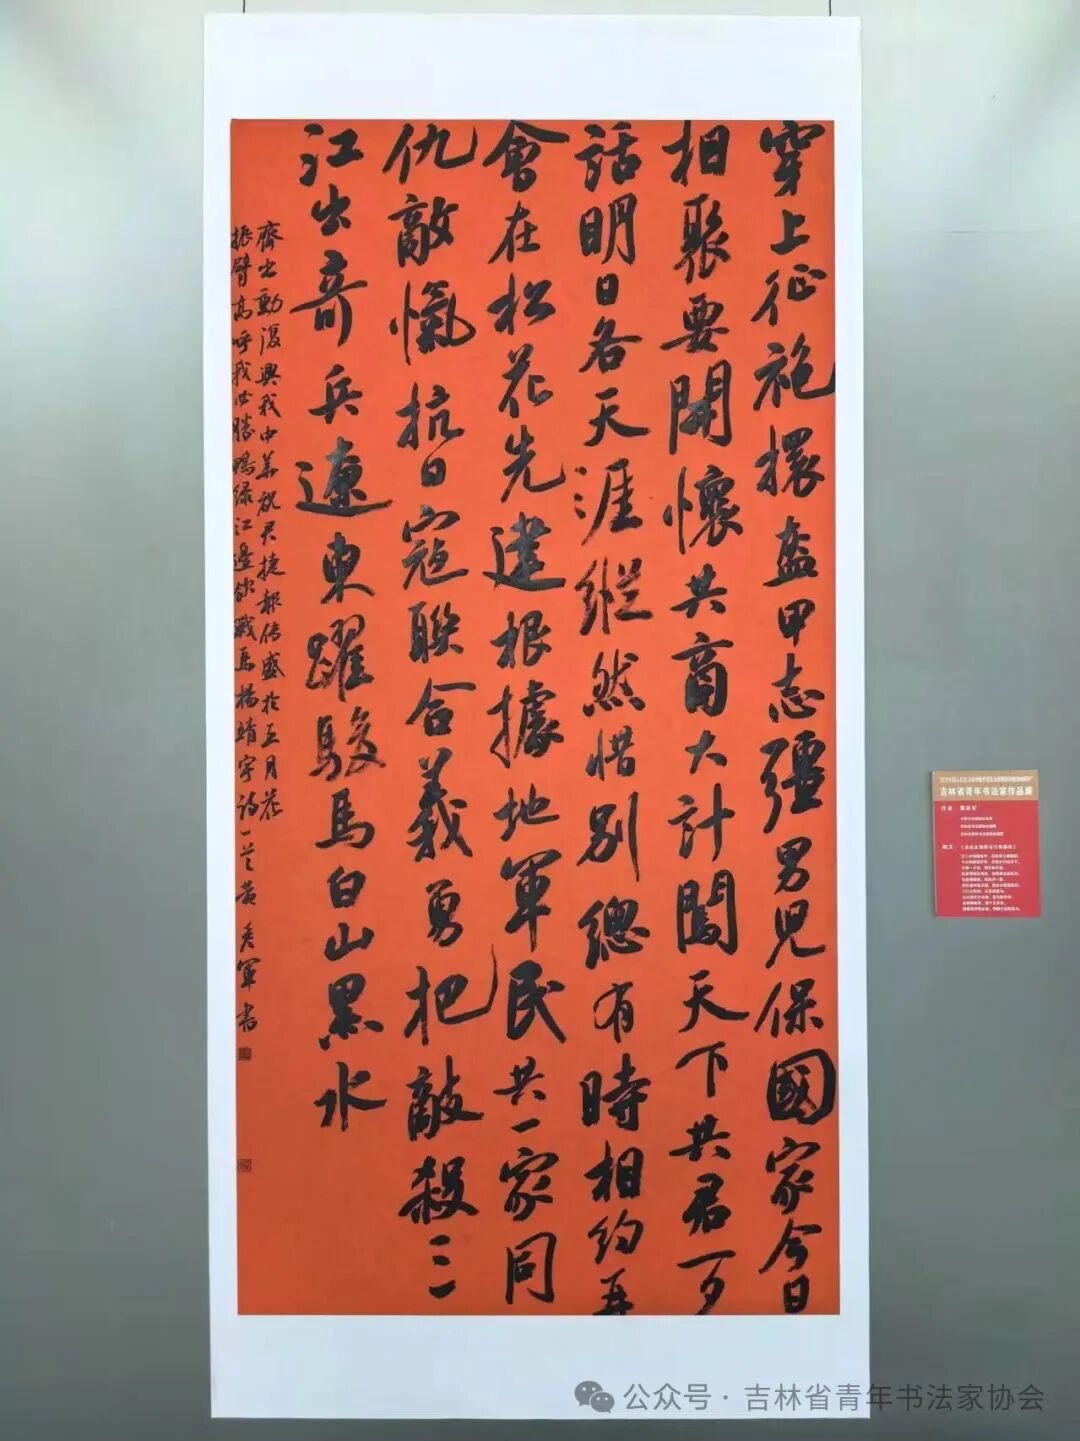 穿上征袍擐盔甲志疆男兒保國家今日
相聚要開懷共商大計闖天下共君一夕
話明日各天涯縱然惜別總有時相約再
會在松花先建根據地軍民共一家同
仇敵愾抗日寇聯合義勇把敵殺三
江出奇兵遼東躍駿馬白山黑水
齊出動復興我中華祝君捷報傳盛於五月花
振臂高呼我必勝鴨緑江邊飲戰馬楊靖宇詩一首黃彥軍書
吉林省青年书法家作品展
公众号·吉林省青年书法家协会